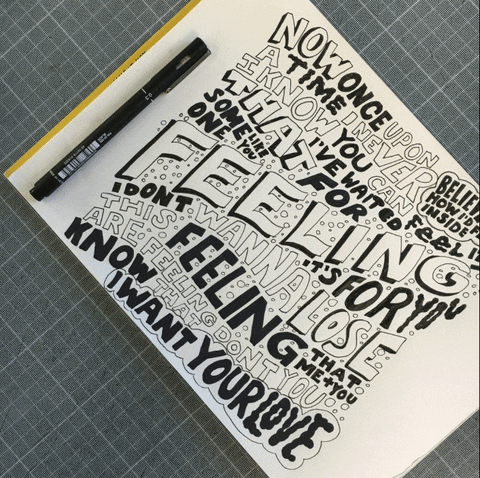 NOW ONCE UPON
A TIME I NEVER
I KNOW YOU CAN
THAT I'VE WAITED FEEL
SOME LIKE FOR
ONE YOU
HOW I'D
INSIDE
FEELING
I DON'T WANNA LOSE
IT'S FOR YOU
THIS FEELING THAT
ARE FEELING ME + YOU
KNOW THAT DON'T YOU
I WANT YOUR LOVE